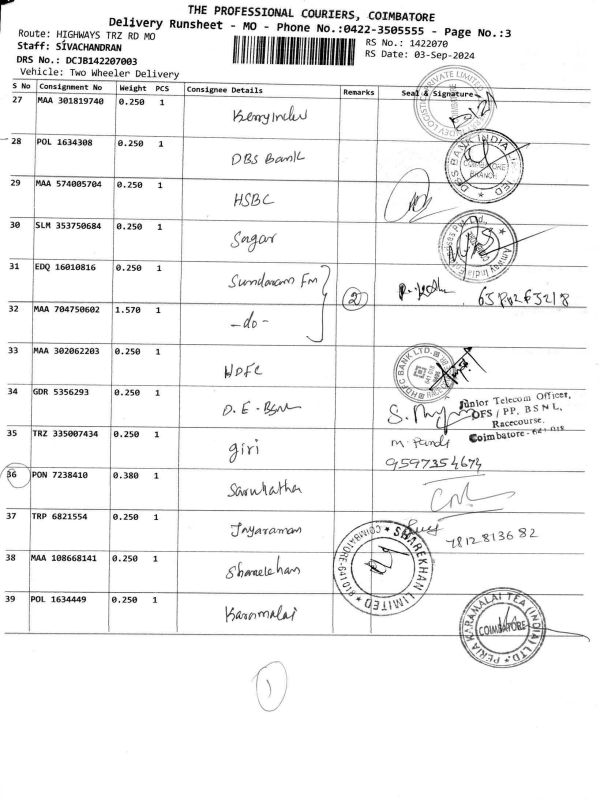 THE PROFESSIONAL COURIERS, COIMBATORE
Delivery Runsheet - MO - Phone No.:0422-3505555 - Page No.:3
Route: HIGHWAYS TRZ RD MO
RS No.: 1422070
Staff: SIVACHANDRAN
RS Date: 03-Sep-2024
DRS No.: DCJB142207003
Vehicle: Two Wheeler Delivery
S No Consignment No Weight PCS Consignee Details Remarks Seal & Signature
27 MAA 301819740 0.250 1
28 POL 1634308 0.250 1 DBS Bank
DBS BANK INDIA LIMITED COIMBATORE BRANCH
29 MAA 574005704 0.250 1 HSBC
30 SLM 353750684 0.250 1 Sagar
31 EDQ 16010816 0.250 1 Sundaram Fm
2
32 MAA 704750602 1.570 1 -do-
33 MAA 302062203 0.250 1 HDFC
HDFC BANK LTD.
34 GDR 5356293 0.250 1 D.E-BSNL
Junior Telecom Officer,
OFS / PP, BSNL,
Racecourse,
Coimbatore - 641 018
35 TRZ 335007434 0.250 1 giri
9597354674
36 PON 7238410 0.380 1
37 TRP 6821554 0.250 1 Jayaraman
7812813682
38 MAA 108668141 0.250 1 Sharekhan
SHAREKHAN LIMITED COIMBATORE-641018
39 POL 1634449 0.250 1 Karamalai
PERIA KARAMALAI TEA (INDIA) LTD. COIMBATORE
1